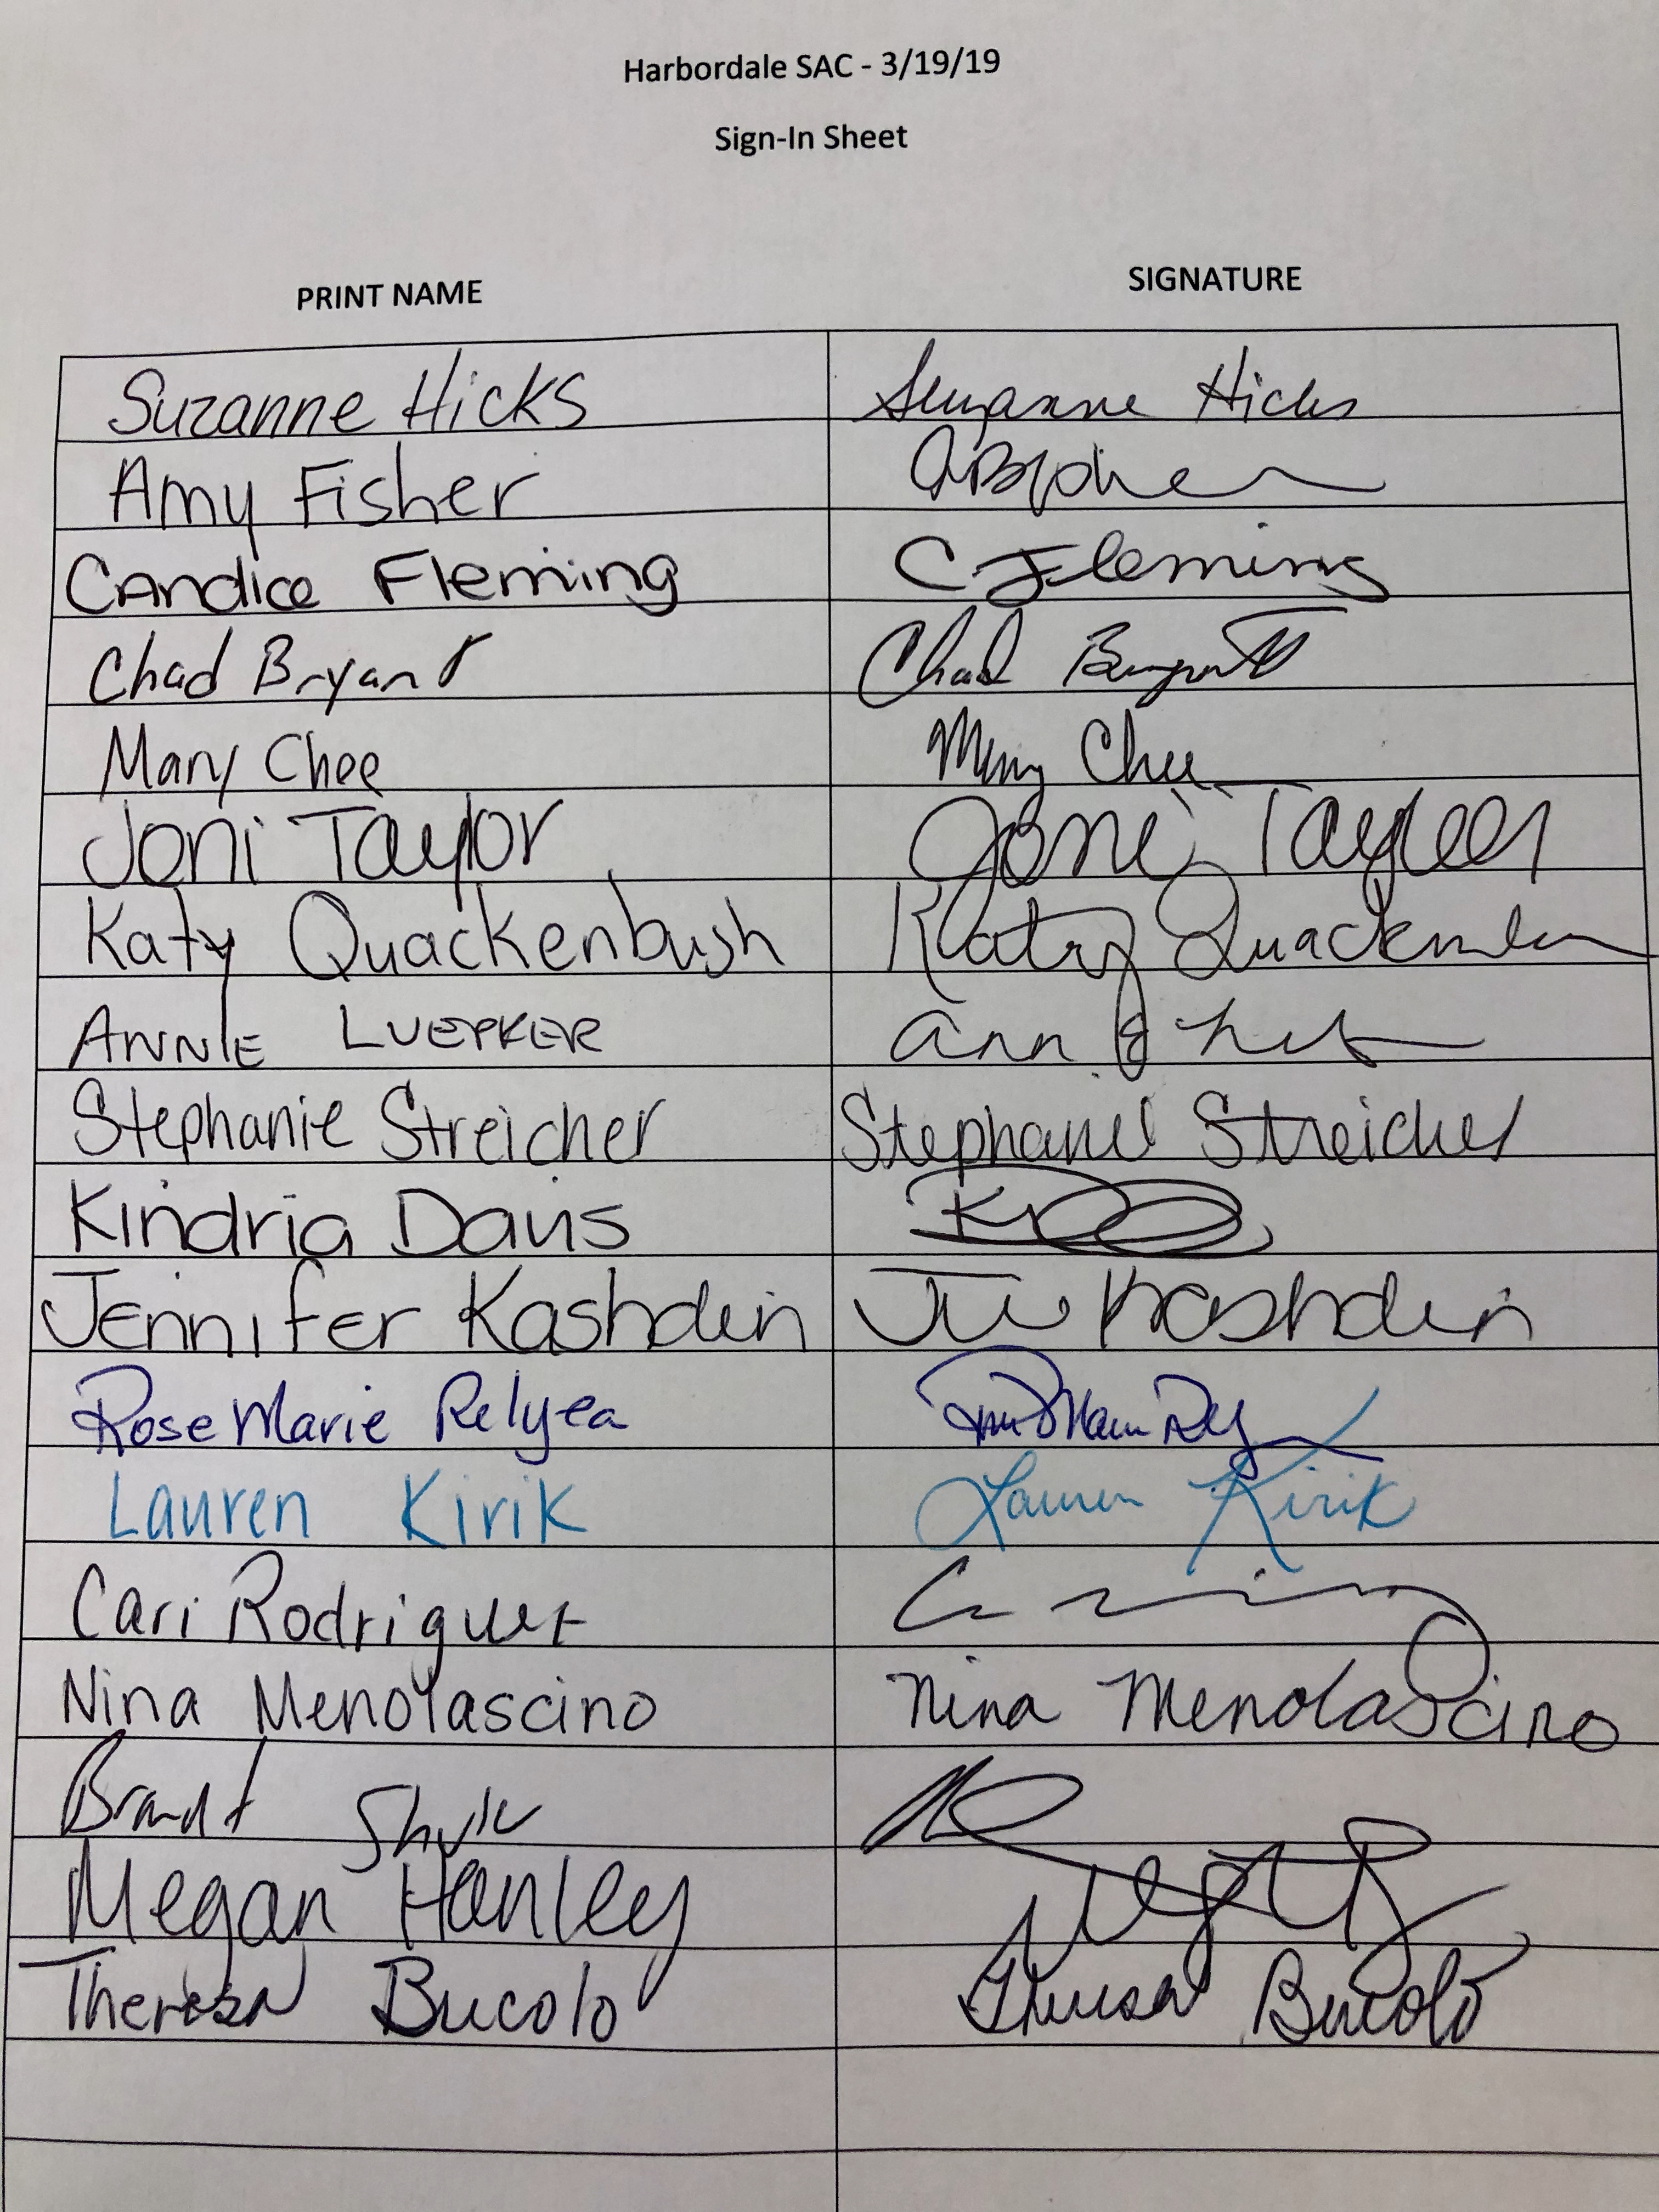 Harbordale SAC - 3/19/19
Sign-In Sheet
PRINT NAME SIGNATURE
Suzanne Hicks Suzanne Hicks
Amy Fisher
Candice Fleming C Fleming
Chad Bryant Chad Bryant
Mary Chee Mary Chee
Joni Taylor Joni Taylor
Katy Quackenbush Katy Quackenbush
ANNIE LUEPKER Ann
Stephanie Streicher Stephanie Streicher
Kindria Davis
Jennifer Kashdin Kashdin
RoseMarie Relyea
Lauren Kirik Lauren Kirik
Cari Rodriguez
Nina Menolascino Nina Menolascino
Brandt
Megan Hanley
Theresa Bucolo Theresa Bucolo